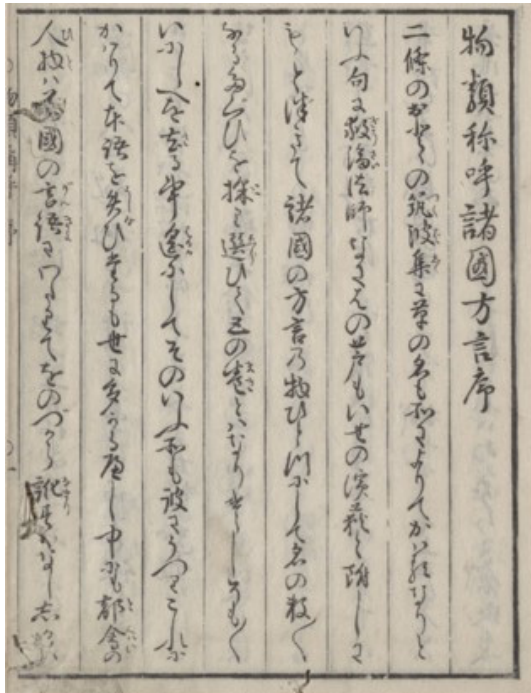 物類称呼諸國方言序
二條のおとゞの筑波集に草の名も所によりてかはるなりと
いふ句に救済法師なにはの芦もいせの濱荻と附しに
もとづきて諸國の方言乃物ひとつにして名の数〱
なるたぐひを採り選びて五の巻とはなりけらしそも〱
いにしへを去る事遠くしてそのいふ所も彼にうつりこれに
かはりて本語を失ひたるも世に多かるべし中にも都會の
人物は萬國の言語にわたりてをのづから訛すくなし